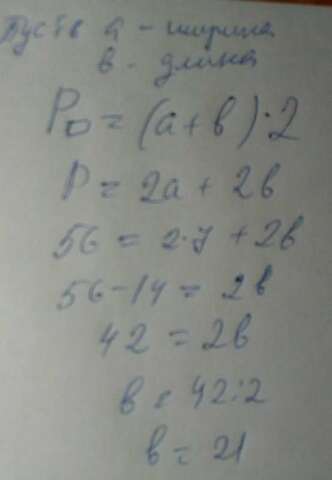 Пусть а - ширина
в - длина
P□ = (а+в)·2
P = 2а + 2в
56 = 2·7 + 2в
56-14 = 2в
42 = 2в
в = 42:2
в = 21